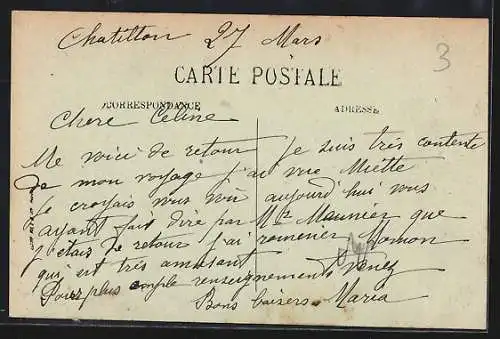 Chatillon 27 Mars
3
CARTE POSTALE
CORRESPONDANCE
ADRESSE
Chere Celine
Me voici de retour je suis très contente
de mon voyage j'ai vue Miette
je croyais vous voir aujourd'hui vous
ayant fait dire par Mr Meunier que
j'étais de retour j'ai ramener Momon
qui est très amusant Venez
Pour plus ample renseignements
Bons baisers Maria